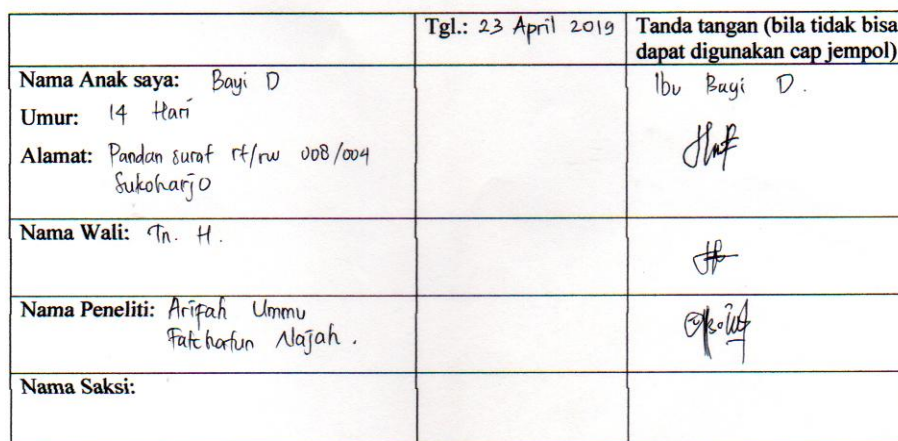 Tgl.: 23 April 2019
Tanda tangan (bila tidak bisa
dapat digunakan cap jempol)
Nama Anak saya: Bayi D
Umur: 14 Hari
Alamat: Pandan surat rt/rw 008/004
Sukoharjo
Ibu Bayi D.
Nama Wali: Tn. H.
Nama Peneliti: Arifah Ummu
Fatchatun Najah.
Nama Saksi: